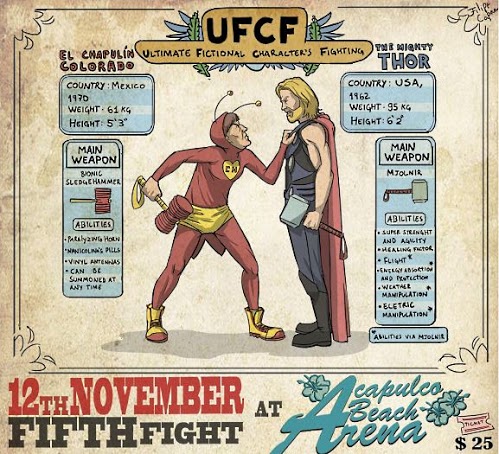 UFCF
ULTIMATE FICTIONAL CHARACTER'S FIGHTING
EL CHAPULÍN
COLORADO
COUNTRY: MEXICO
1970
WEIGHT: 61 KG
HEIGHT: 5'3"
MAIN
WEAPON
BIONIC
SLEDGEHAMMER
ABILITIES
• PARALYZING HORN
• NANICOLINA'S PILLS
• VINYL ANTENNAS
• CAN BE
SUMMONED AT
ANY TIME
CH
THE MIGHTY
THOR
COUNTRY: USA,
1962
WEIGHT: 95 KG
HEIGHT: 6'2"
MAIN
WEAPON
MJOLNIR
ABILITIES
• SUPER STRENGHT
AND AGILITY
• HEALING FACTOR
• FLIGHT*
• ENERGY ABSORTION
AND PROTECTION
• WEATHER
MANIPULATION
• ECETRIC
MANIPULATION
*ABILITIES VIA MJOLNIR
12TH NOVEMBER
FIFTH FIGHT
AT
Acapulco
Beach
Arena
TICKET
$ 25